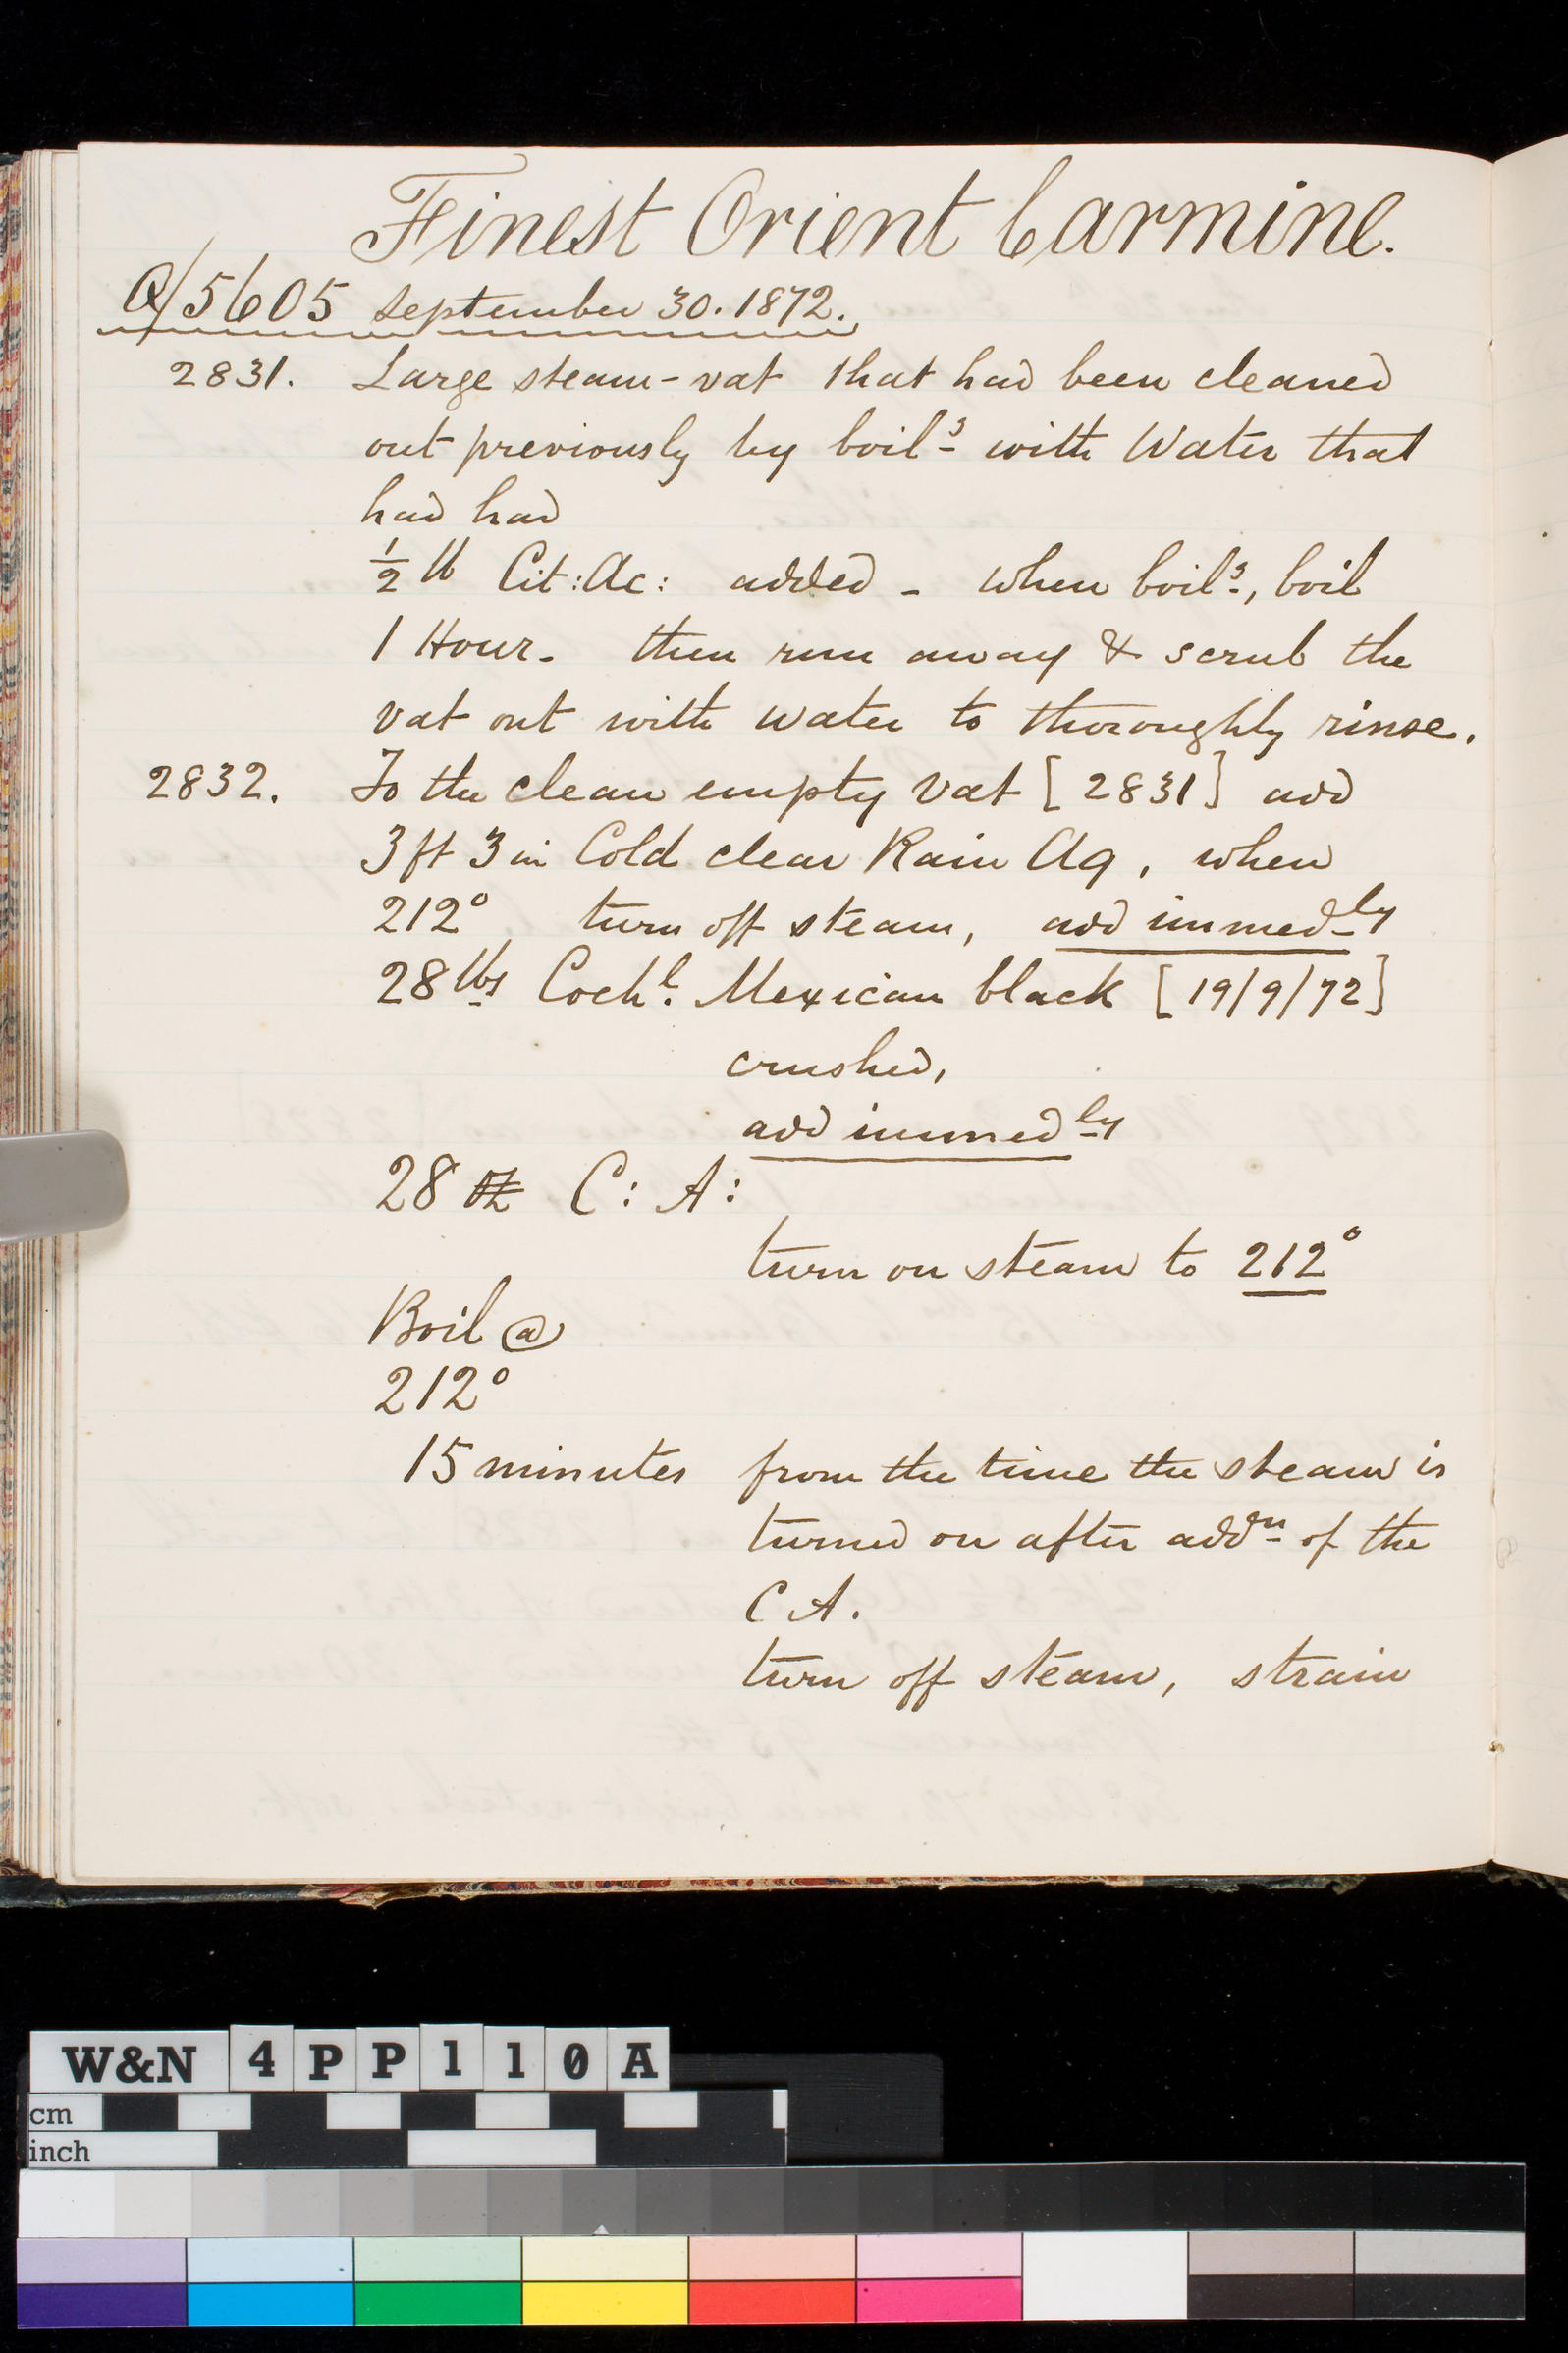 Finest Orient Carmine.
Q/5605 September 30. 1872.
2831. Large steam-vat that had been cleaned
out previously by boilg with Water that
had had
½ lb Cit:Ac: added - when boilg, boil
1 Hour. then run away & scrub the
vat out with water to thoroughly rinse.
2832. To the clean empty Vat [2831] add
3 ft 3 in Cold clear Rain Aq, when
212° turn off steam, add immedly
28 lbs Cochl. Mexican black [19/9/72]
crushed,
add immedly
28 oz C: A:
turn on steam to 212°
Boil @
212°
15 minutes from the time the steam is
turned on after addn of the
C A.
turn off steam, strain
W&N 4PP110A
cm
inch